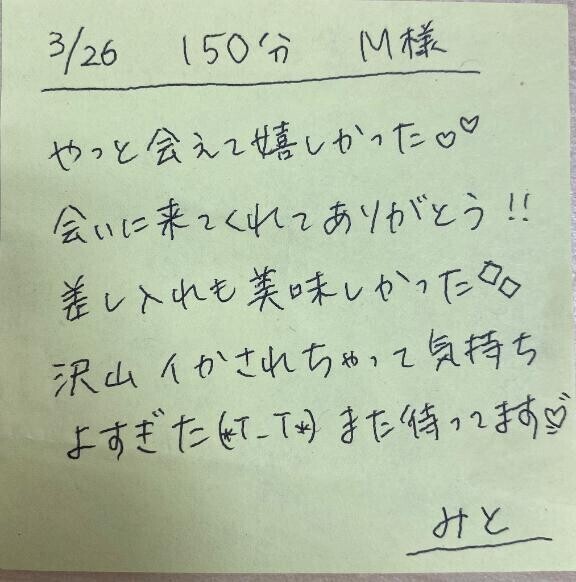 3/26 150分 M様
やっと会えて嬉しかった♡♡
会いに来てくれてありがとう!!
差し入れも美味しかった◇◇
沢山イかされちゃって気持ち
よすぎた(*T_T*)また待ってます♡
みと